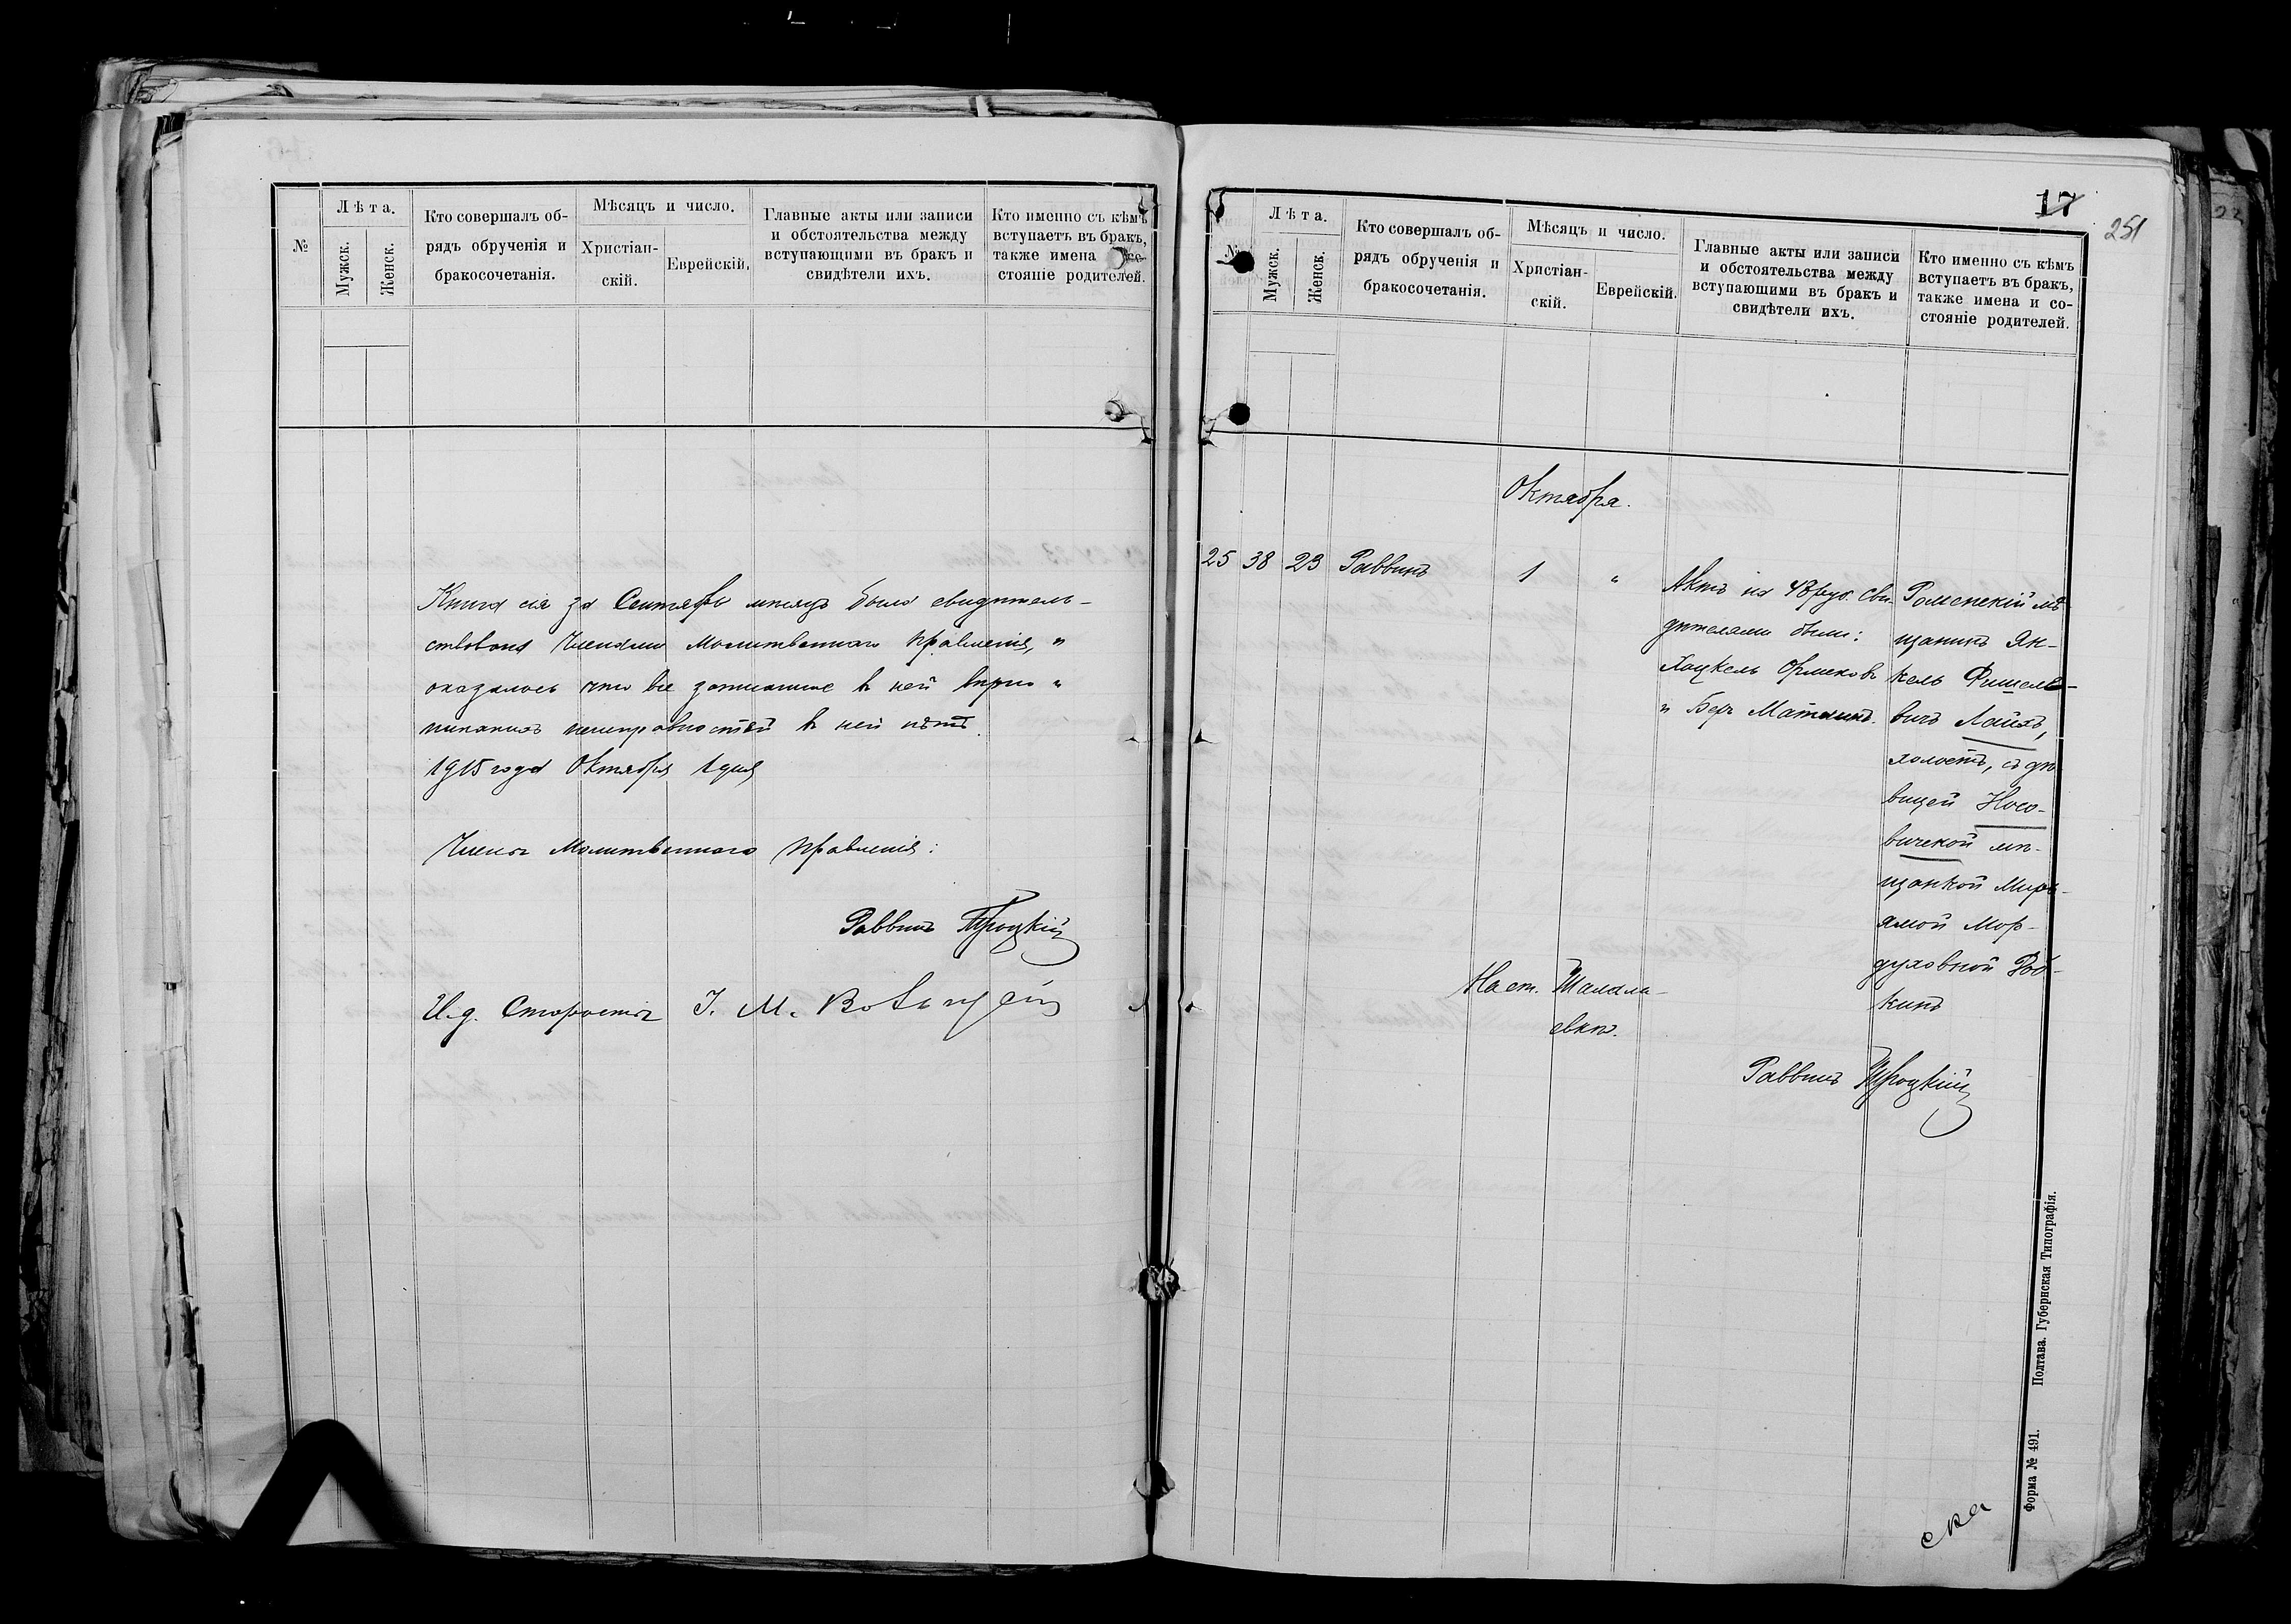 №
Лѣта.
Мужск.
Женск.
Кто совершалъ об-
рядъ обрученія и
бракосочетанія.
Мѣсяцъ и число.
Христіан-
скій.
Еврейскій.
Главные акты или записи
и обстоятельства между
вступающими въ бракъ и
свидѣтели ихъ.
Кто именно съ кѣмъ
вступаетъ въ бракъ,
также имена
стояніе родителей.
Книга сія за Сентябрь мѣсяцъ была свидѣтель-
ствована Членами Молитвеннаго Правленія, и
оказалось что все записанное въ ней вѣрно и
никакихъ неисправностей въ ней нѣтъ.
1915 года Октября 1 дня
Члены Молитвеннаго Правленія:
Раввинъ Троцкій
И.д. Старосты І. М.
17
251
№
Лѣта.
Мужск.
Женск.
Кто совершалъ об-
рядъ обрученія и
бракосочетанія.
Мѣсяцъ и число.
Христіан-
скій.
Еврейскій.
Главные акты или записи
и обстоятельства между
вступающими въ бракъ и
свидѣтели ихъ.
Кто именно съ кѣмъ
вступаетъ въ бракъ,
также имена и со-
стояніе родителей.
Октября.
25 38 23 Раввинъ 1 "
Актъ на 48 руб. Сви-
дѣтелями были:
Хацкель
и Беръ
Роменскій мѣ-
щанинъ Ян-
кель Фишеле-
вичъ Лайхъ,
холостъ, съ дѣ-
вицей Носо-
вичской мѣ-
щанкой Мирь-
ямой Мор-
духовной Рой-
кинъ
Наст.
Раввинъ Троцкій
ска
Форма № 491. Полтава. Губернская Типографія.